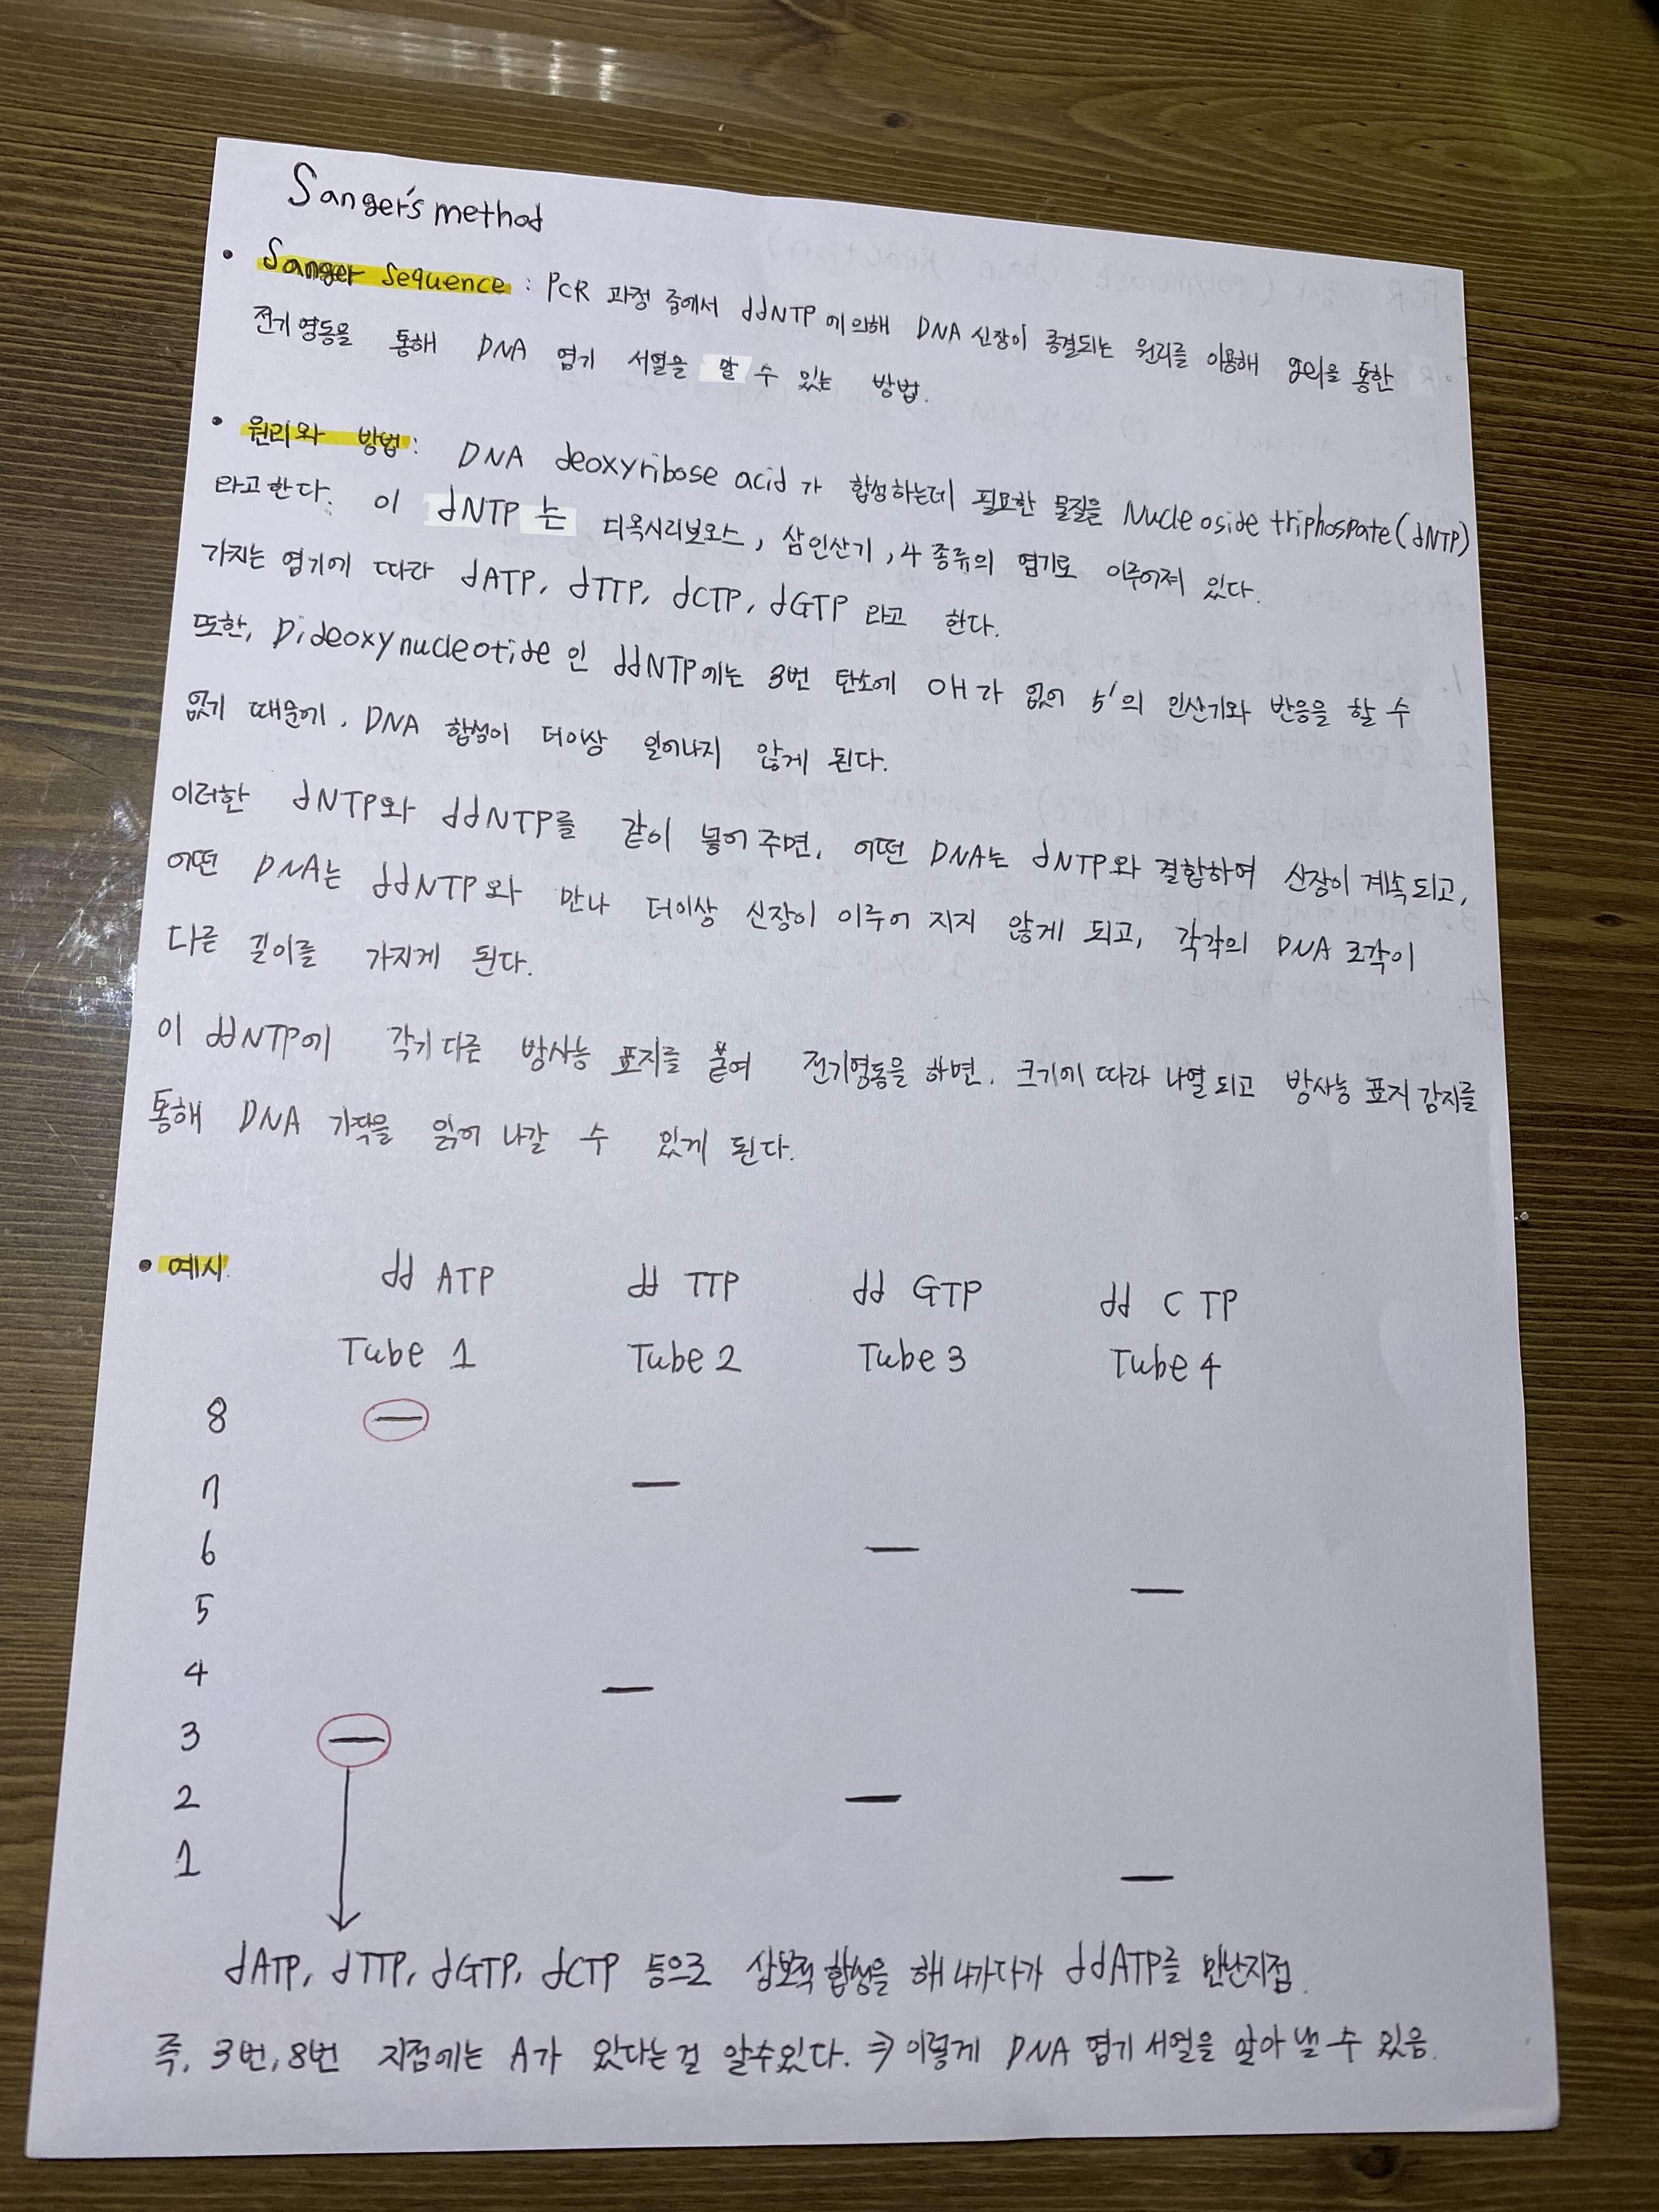 Sanger's method
• Sanger Sequence : PCR 과정 중에서 ddNTP에 의해 DNA 신장이 종결되는 원리를 이용해 gel을 통한
전기영동을 통해 DNA 염기 서열을 알 수 있는 방법.
• 원리와 방법 : DNA deoxyribose acid가 합성하는데 필요한 물질을 Nucleoside triphospate(dNTP)
라고한다. 이 dNTP는 디옥시리보오스, 삼인산기, 4종류의 염기로 이루어져 있다.
가지는 염기에 따라 dATP, dTTP, dCTP, dGTP 라고 한다.
또한, Dideoxynucleotide인 ddNTP에는 3번 탄소에 OH가 없어 5'의 인산기와 반응을 할 수
없기 때문에, DNA 합성이 더이상 일어나지 않게 된다.
이러한 dNTP와 ddNTP를 같이 넣어 주면, 어떤 DNA는 dNTP와 결합하여 신장이 계속 되고,
어떤 DNA는 ddNTP와 만나 더이상 신장이 이루어 지지 않게 되고, 각각의 DNA 조각이
다른 길이를 가지게 된다.
이 ddNTP에 각기 다른 방사능 표지를 붙여 전기영동을 하면, 크기에 따라 나열 되고 방사능 표지 감지를
통해 DNA 가닥을 읽어 나갈 수 있게 된다.
• 예시. dd ATP dd TTP dd GTP dd CTP
Tube 1 Tube 2 Tube 3 Tube 4
8
7
6
5
4
3
2
1
dATP, dTTP, dGTP, dCTP 등으로 상보적 합성을 해 나가다가 ddATP를 만난지점.
즉, 3번, 8번 지점에는 A가 있다는걸 알수있다. ⇒ 이렇게 DNA 염기 서열을 알아 낼 수 있음.